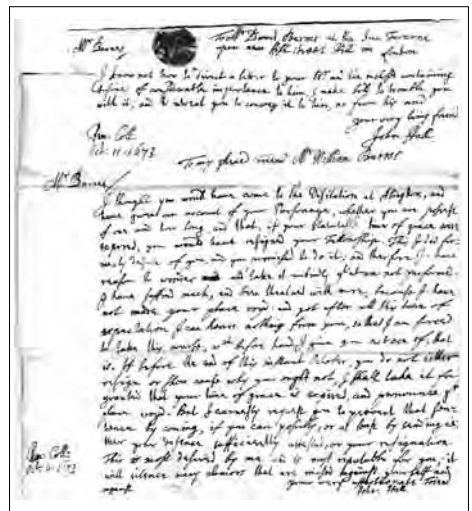 Mr Barnes
To Mr David Barnes at the Sun Taverne
upon new fish street hill in London
I know not how to direct a letter to your Br and the inclosd containing
of considerable importance to him, I make bold to trouble you
with it, and to intreat you to convey it to him, as from his and
your very loving friend
John Hall
Pem. Coll.
Oct. 11. 1673
To my friend Mr William Barnes
Mr Barnes
I thought you would have come to the Visitation at Abingdon, and
have given an account of your whether you are
of one and how long, and that, if your time of grace were
expired, you would have resigned your Fellowship. This I did
desire of you and you promised to do it; and therefore I have
reason to wonder and take it unkindly not performd.
I have sufferd much, and been threatned with more, because I have
not made your place void: and yet after all this time of
expectation I can hear nothing from you, so that I am forced
to take this course, wch before hand I give you notice of, that
is, If before the end of this instant October, you do not either
resign or show cause why you ought not, I shall take it for
granted that your time of grace is expired, and pronounce yr
place void. But I earnestly request you to prevent that
by coming, if you can possibly, or at least by sending
either your defence sufficiently attested, or your resignation
This is most desired by me and is most reputable for you; it
will silence many clamors that are raised against your self and
your very affectionate friend
John Hall
Pem. Coll.
Oct. 11. 1673